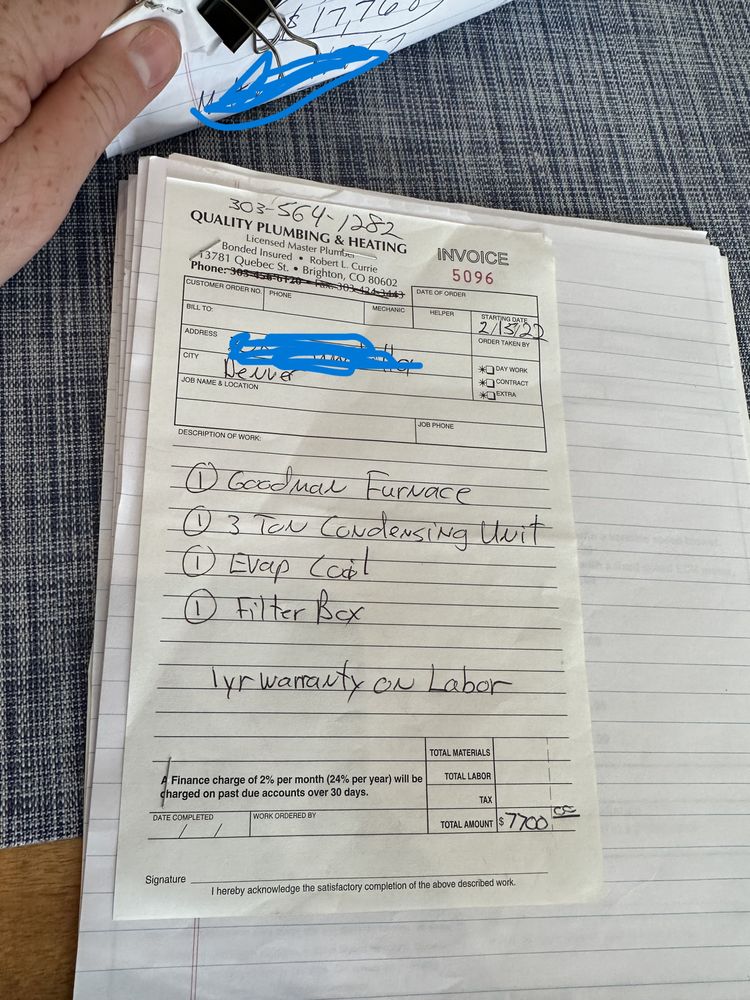 $ 17,760
303-564-1282
QUALITY PLUMBING & HEATING
Licensed Master Plumber
Bonded Insured • Robert L. Currie
13781 Quebec St. • Brighton, CO 80602
Phone: 303-456-6120 • Fax: 303-424-3443
INVOICE
5096
CUSTOMER ORDER NO.
PHONE
DATE OF ORDER
BILL TO:
MECHANIC
HELPER
STARTING DATE
2/15/22
ADDRESS
ORDER TAKEN BY
CITY
Denver
DAY WORK
CONTRACT
EXTRA
JOB NAME & LOCATION
JOB PHONE
DESCRIPTION OF WORK:
① Goodman Furnace
① 3 Ton Condensing Unit
① Evap Coil
① Filter Box
1yr warranty on Labor
TOTAL MATERIALS
A Finance charge of 2% per month (24% per year) will be
charged on past due accounts over 30 days.
TOTAL LABOR
TAX
DATE COMPLETED
/ /
WORK ORDERED BY
TOTAL AMOUNT $ 7700 00
Signature
I hereby acknowledge the satisfactory completion of the above described work.